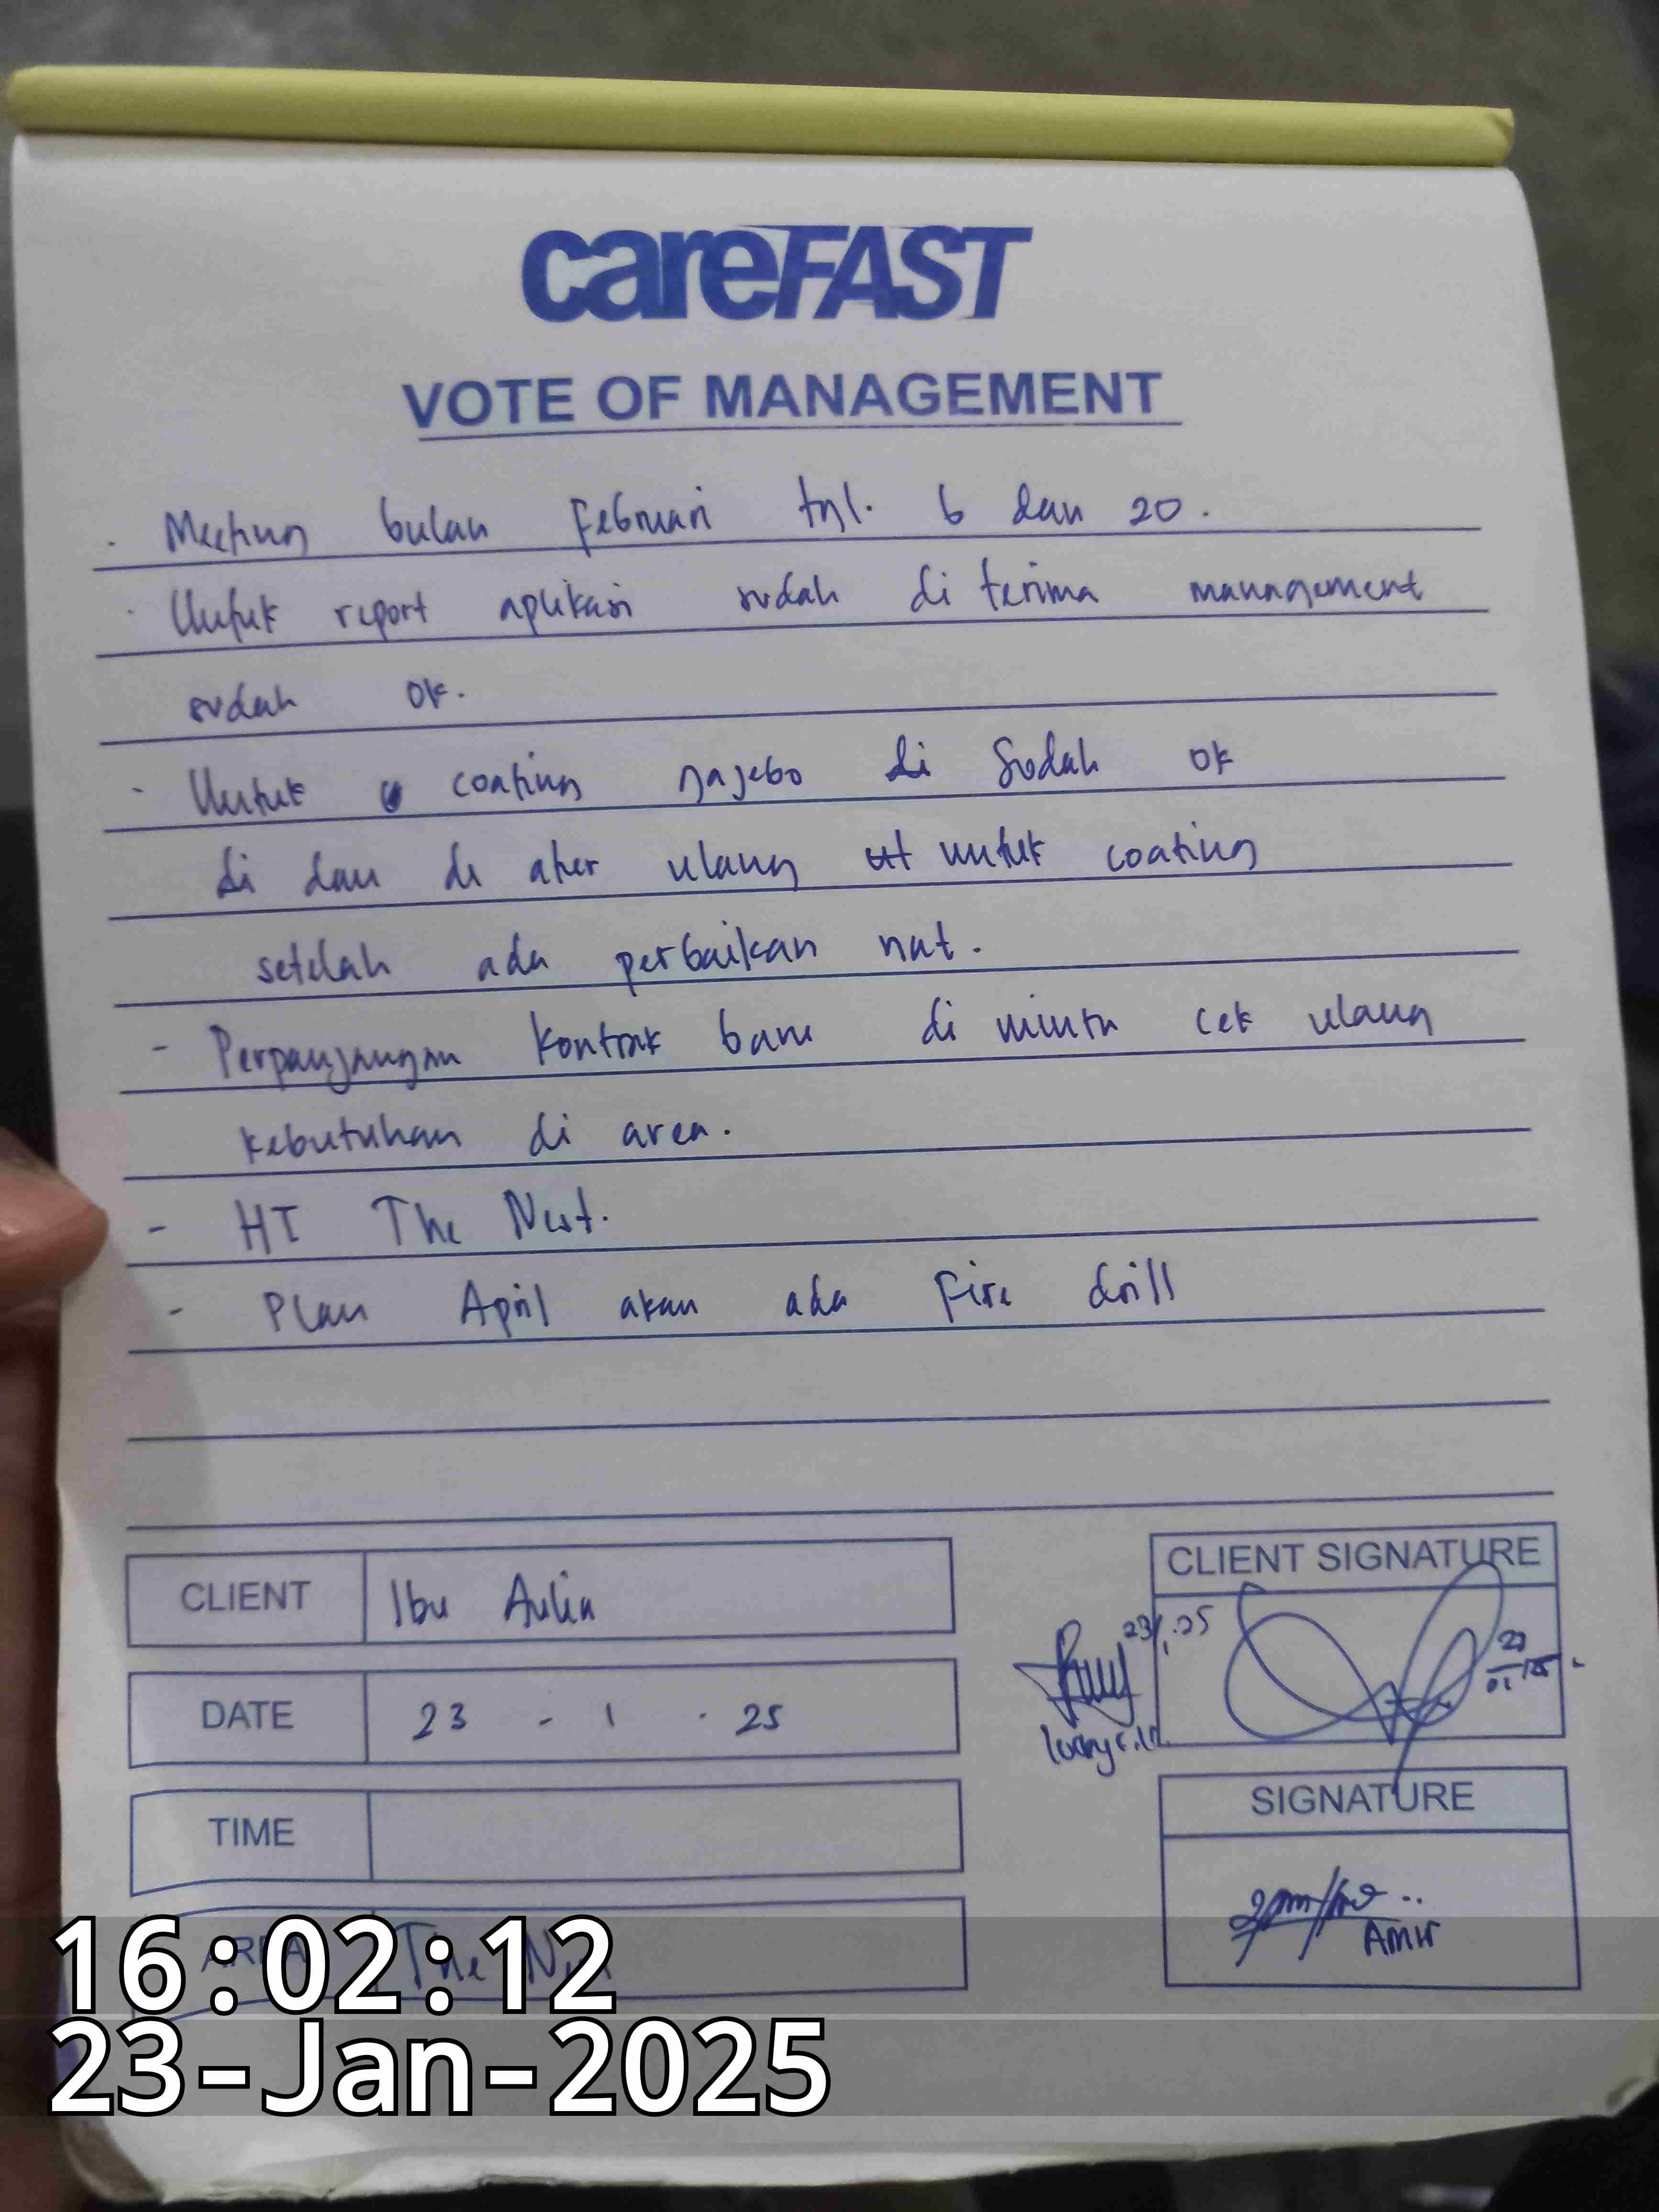 careFAST
VOTE OF MANAGEMENT
· Meeting bulan Februari tgl. 6 dan 20.
· Untuk report aplikasi sudah di terima management
sudah ok.
- Untuk coating gazebo di Sudah ok
di dan di ater ulang untuk coating
setelah ada perbaikan nat.
- Perpanjangan kontrak baru di minta cek ulang
kebutuhan di area.
- HT The Nest.
- Plan April akan ada fire drill
CLIENT Ibu Aulia
CLIENT SIGNATURE
23/1.25
DATE 23 - 1 - 25
TIME
SIGNATURE
AREA The
Amir
16:02:12
23-Jan-2025